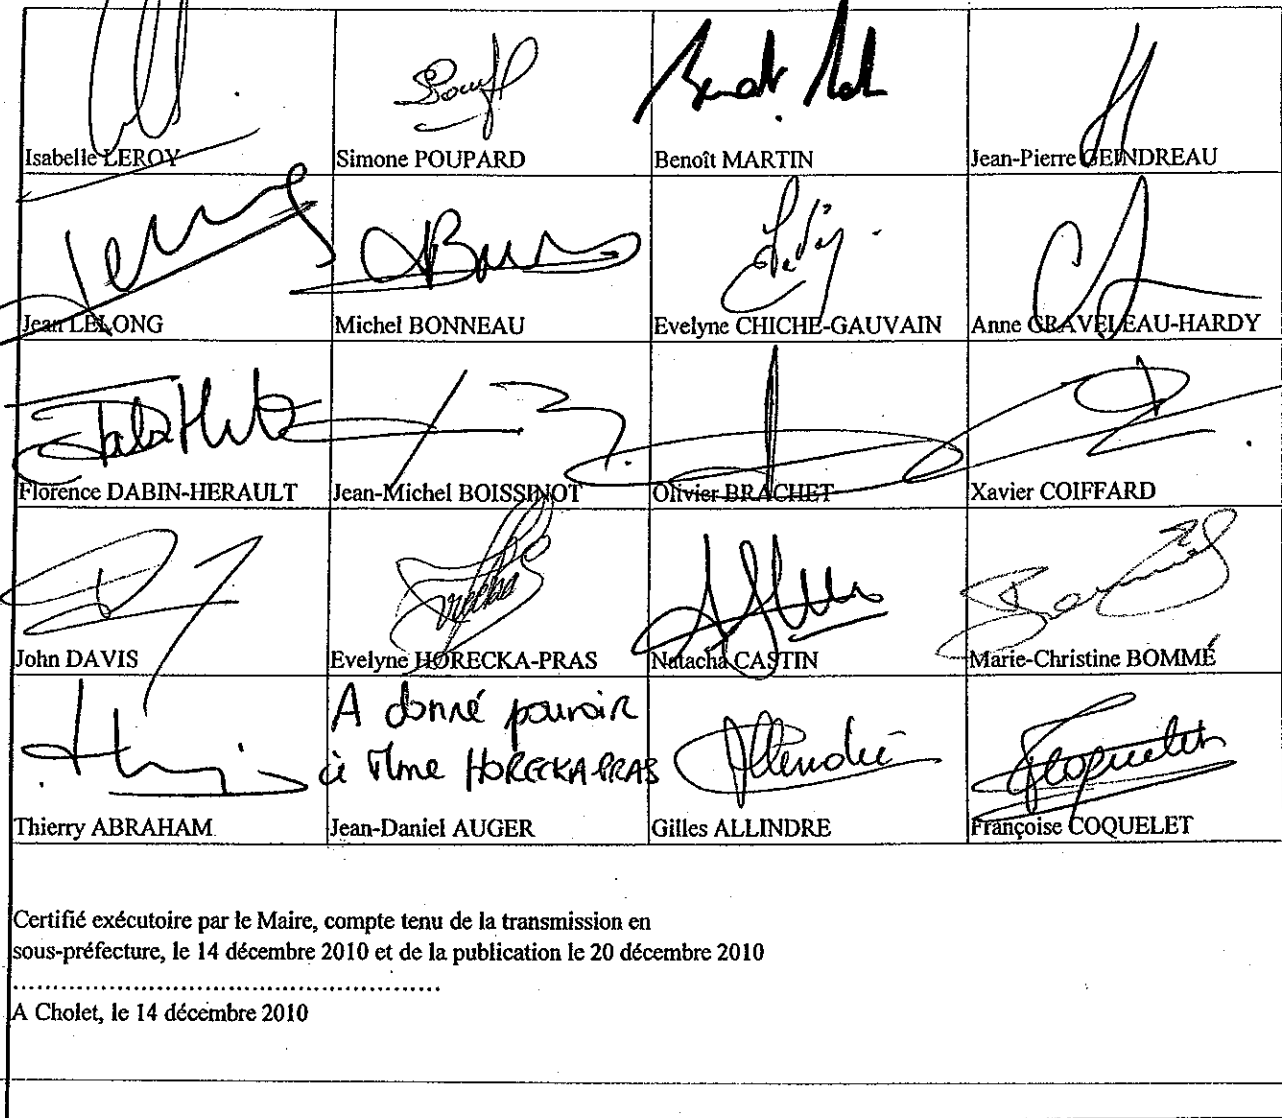 Isabelle LEROY
Simone POUPARD
Benoît MARTIN
Jean-Pierre GEINDREAU
Jean LELONG
Michel BONNEAU
Evelyne CHICHE-GAUVAIN
Anne GRAVELEAU-HARDY
Florence DABIN-HERAULT
Jean-Michel BOISSINOT
Olivier BRACHET
Xavier COIFFARD
John DAVIS
Evelyne HORECKA-PRAS
Natacha CASTIN
Marie-Christine BOMMÉ
A donné pouvoir
à Mme HORECKA-PRAS
Thierry ABRAHAM
Jean-Daniel AUGER
Gilles ALLINDRE
Françoise COQUELET
Certifié exécutoire par le Maire, compte tenu de la transmission en
sous-préfecture, le 14 décembre 2010 et de la publication le 20 décembre 2010
A Cholet, le 14 décembre 2010